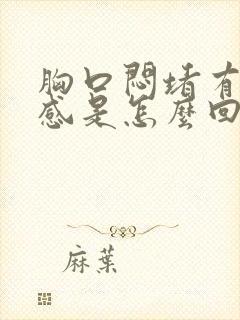 胸口悶堵有
感是怎麼回
麻葉